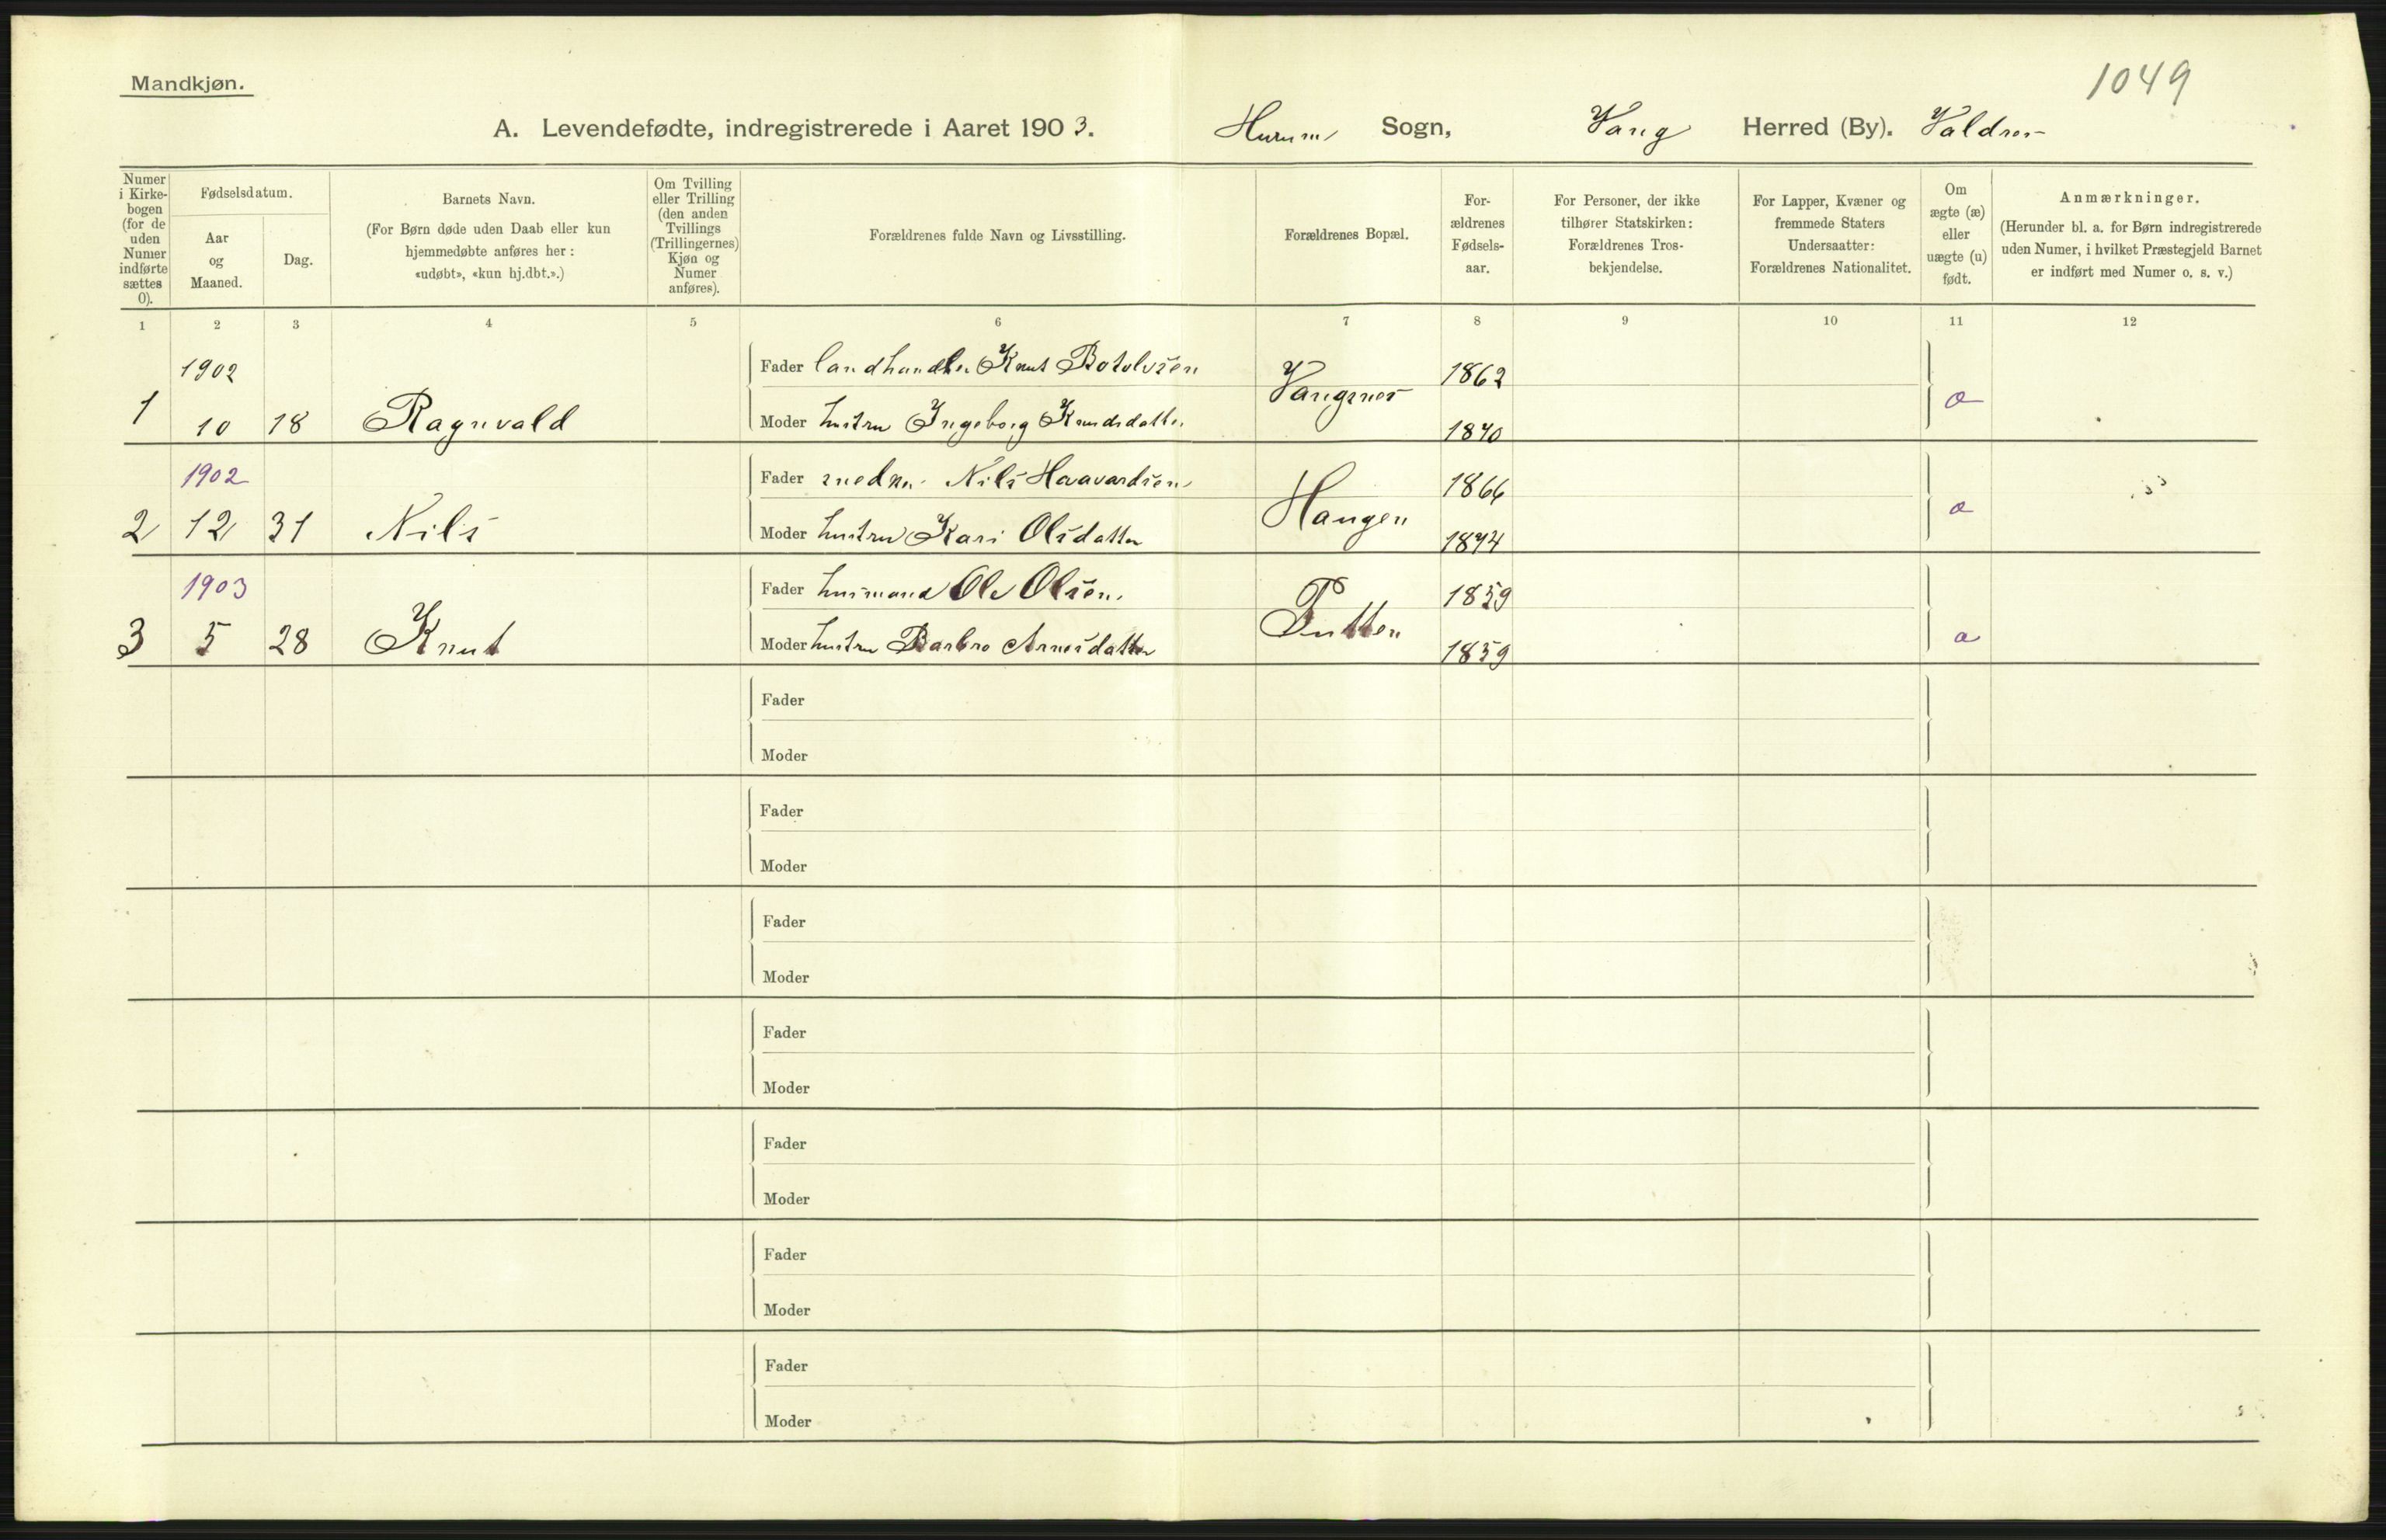 Mandkjøn.
1049
A. Levendefødte, indregistrerede i Aaret 1903. Hurum Sogn, Vang Herred (By). Valdres
Numer i Kirke-bogen (for de uden Numer indførte sættes 0).
Fødselsdatum.
Aar og Maaned.
Dag.
Barnets Navn.
(For Børn døde uden Daab eller kun hjemmedøbte anføres her: «udøbt», «kun hj.dbt.».)
Om Tvilling eller Trilling (den anden Tvillings (Trillingernes) Kjøn og Numer anføres).
Forældrenes fulde Navn og Livsstilling.
Forældrenes Bopæl.
For-ældrenes Fødsels-aar.
For Personer, der ikke tilhører Statskirken: Forældrenes Tros-bekjendelse.
For Lapper, Kvæner og fremmede Staters Undersaatter: Forældrenes Nationalitet.
Om ægte (æ) eller uægte (u) født.
Anmærkninger.
(Herunder bl. a. for Børn indregistrerede uden Numer, i hvilket Præstegjeld Barnet er indført med Numer o. s. v.)
1 2 3 4 5 6 7 8 9 10 11 12
1902 Fader landhandler Knut Botolvsen Vangsnes 1862
1 10 18 Ragnvald Moder hustru Ingeborg Knudsdatter 1870
1902 Fader snedker Nils Haavardsen Haugen 1866
2 12 31 Nils Moder hustru Kari Olsdatter 1874
1903 Fader husmand Ole Olsen 1859
3 5 28 Knut Moder hustru Barbro Arnesdatter 1859
Fader
Moder
Fader
Moder
Fader
Moder
Fader
Moder
Fader
Moder
Fader
Moder
Fader
Moder